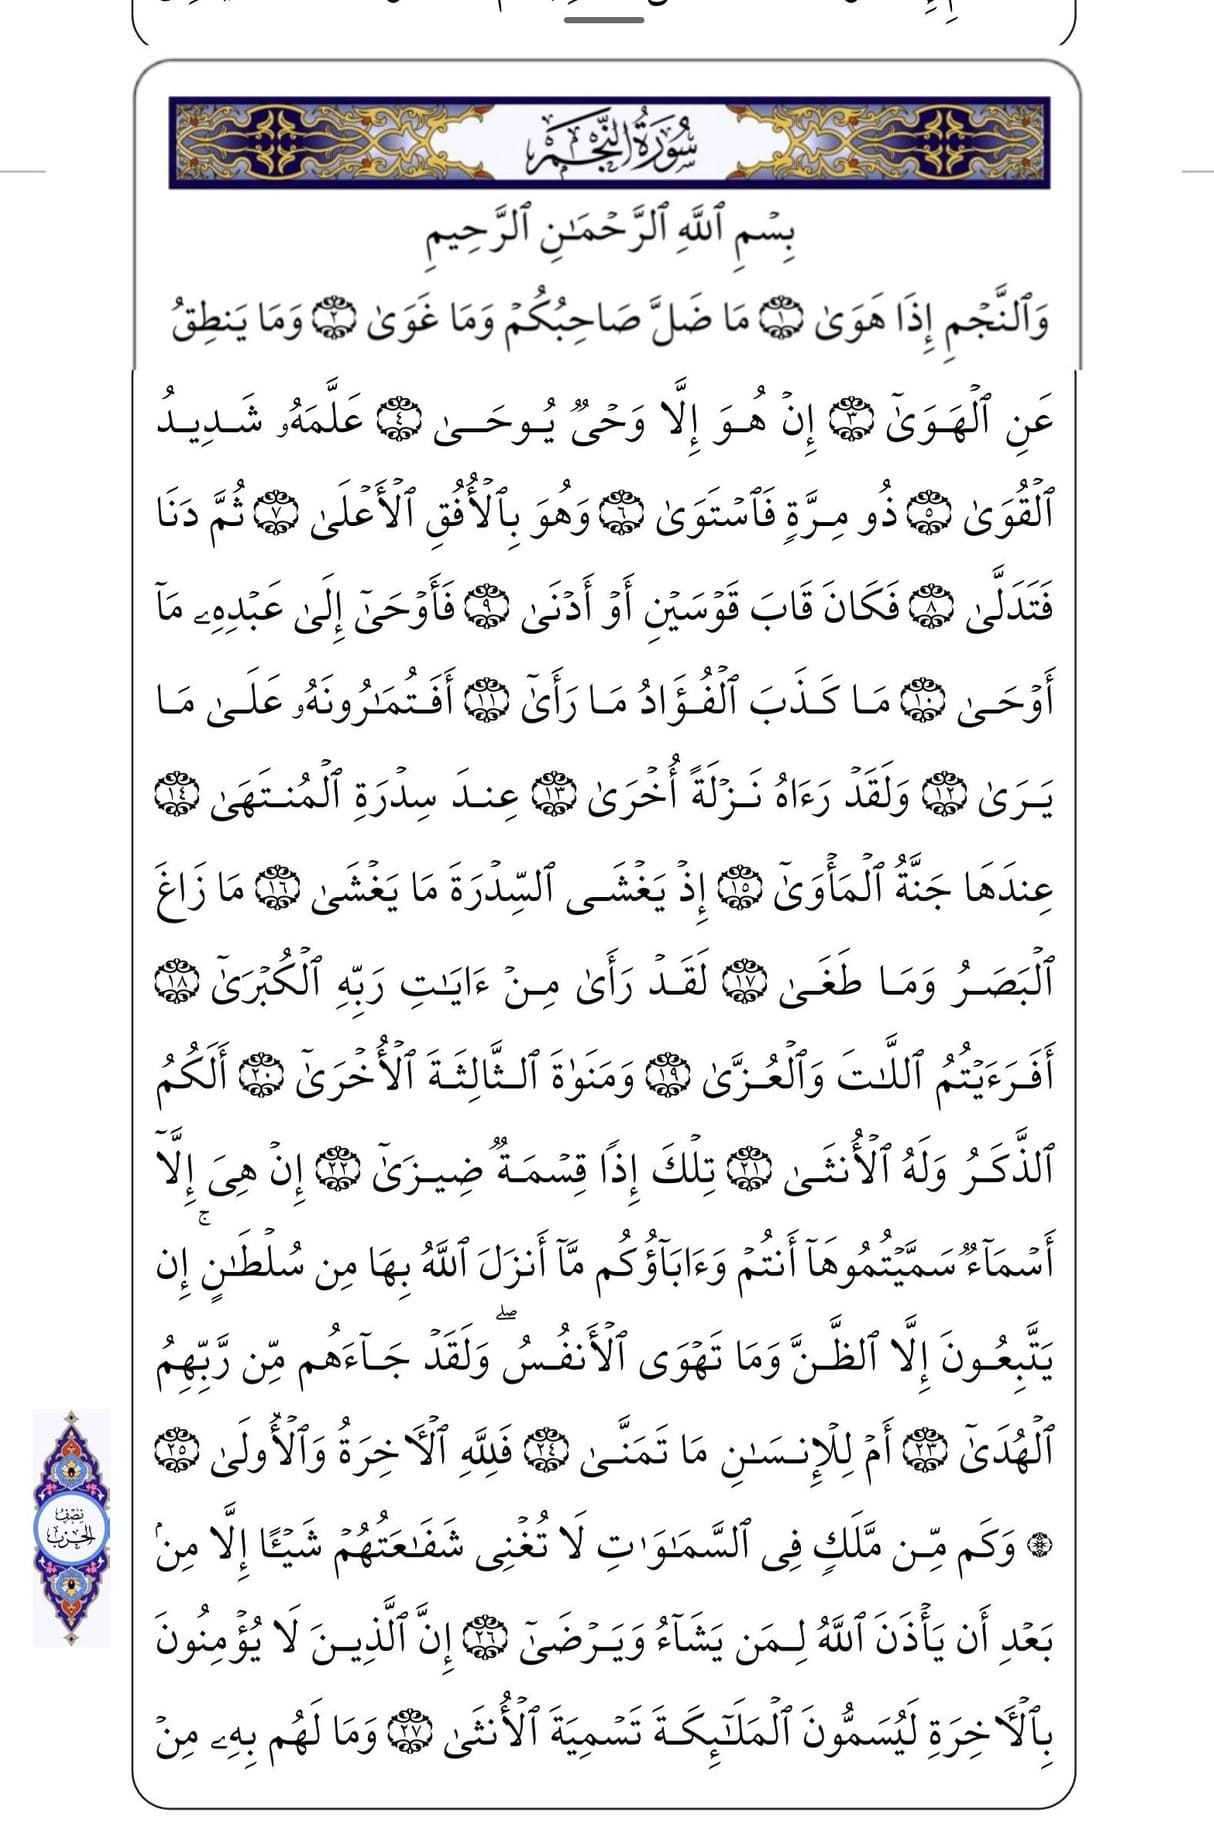 سُورَةُ النَّجْم
بِسْمِ ٱللَّهِ ٱلرَّحْمَـٰنِ ٱلرَّحِيمِ
وَٱلنَّجْمِ إِذَا هَوَىٰ ۝١ مَا ضَلَّ صَاحِبُكُمْ وَمَا غَوَىٰ ۝٢ وَمَا يَنطِقُ
عَنِ ٱلْهَوَىٰٓ ۝٣ إِنْ هُوَ إِلَّا وَحْىٌ يُوحَىٰ ۝٤ عَلَّمَهُۥ شَدِيدُ
ٱلْقُوَىٰ ۝٥ ذُو مِرَّةٍ فَٱسْتَوَىٰ ۝٦ وَهُوَ بِٱلْأُفُقِ ٱلْأَعْلَىٰ ۝٧ ثُمَّ دَنَا
فَتَدَلَّىٰ ۝٨ فَكَانَ قَابَ قَوْسَيْنِ أَوْ أَدْنَىٰ ۝٩ فَأَوْحَىٰٓ إِلَىٰ عَبْدِهِۦ مَآ
أَوْحَىٰ ۝١٠ مَا كَذَبَ ٱلْفُؤَادُ مَا رَأَىٰٓ ۝١١ أَفَتُمَـٰرُونَهُۥ عَلَىٰ مَا
يَرَىٰ ۝١٢ وَلَقَدْ رَءَاهُ نَزْلَةً أُخْرَىٰ ۝١٣ عِندَ سِدْرَةِ ٱلْمُنتَهَىٰ ۝١٤
عِندَهَا جَنَّةُ ٱلْمَأْوَىٰٓ ۝١٥ إِذْ يَغْشَى ٱلسِّدْرَةَ مَا يَغْشَىٰ ۝١٦ مَا زَاغَ
ٱلْبَصَرُ وَمَا طَغَىٰ ۝١٧ لَقَدْ رَأَىٰ مِنْ ءَايَـٰتِ رَبِّهِ ٱلْكُبْرَىٰٓ ۝١٨
أَفَرَءَيْتُمُ ٱللَّـٰتَ وَٱلْعُزَّىٰ ۝١٩ وَمَنَوٰةَ ٱلثَّالِثَةَ ٱلْأُخْرَىٰٓ ۝٢٠ أَلَكُمُ
ٱلذَّكَرُ وَلَهُ ٱلْأُنثَىٰ ۝٢١ تِلْكَ إِذًا قِسْمَةٌ ضِيزَىٰٓ ۝٢٢ إِنْ هِىَ إِلَّآ
أَسْمَآءٌ سَمَّيْتُمُوهَآ أَنتُمْ وَءَابَآؤُكُم مَّآ أَنزَلَ ٱللَّهُ بِهَا مِن سُلْطَـٰنٍ ۚ إِن
يَتَّبِعُونَ إِلَّا ٱلظَّنَّ وَمَا تَهْوَى ٱلْأَنفُسُ ۖ وَلَقَدْ جَآءَهُم مِّن رَّبِّهِمُ
ٱلْهُدَىٰٓ ۝٢٣ أَمْ لِلْإِنسَـٰنِ مَا تَمَنَّىٰ ۝٢٤ فَلِلَّهِ ٱلْـَٔاخِرَةُ وَٱلْأُولَىٰ ۝٢٥
۞ وَكَم مِّن مَّلَكٍ فِى ٱلسَّمَـٰوَٰتِ لَا تُغْنِى شَفَـٰعَتُهُمْ شَيْـًٔا إِلَّا مِنۢ
بَعْدِ أَن يَأْذَنَ ٱللَّهُ لِمَن يَشَآءُ وَيَرْضَىٰٓ ۝٢٦ إِنَّ ٱلَّذِينَ لَا يُؤْمِنُونَ
بِٱلْـَٔاخِرَةِ لَيُسَمُّونَ ٱلْمَلَـٰٓئِكَةَ تَسْمِيَةَ ٱلْأُنثَىٰ ۝٢٧ وَمَا لَهُم بِهِۦ مِنْ
نِصْفُ
الحِزْب